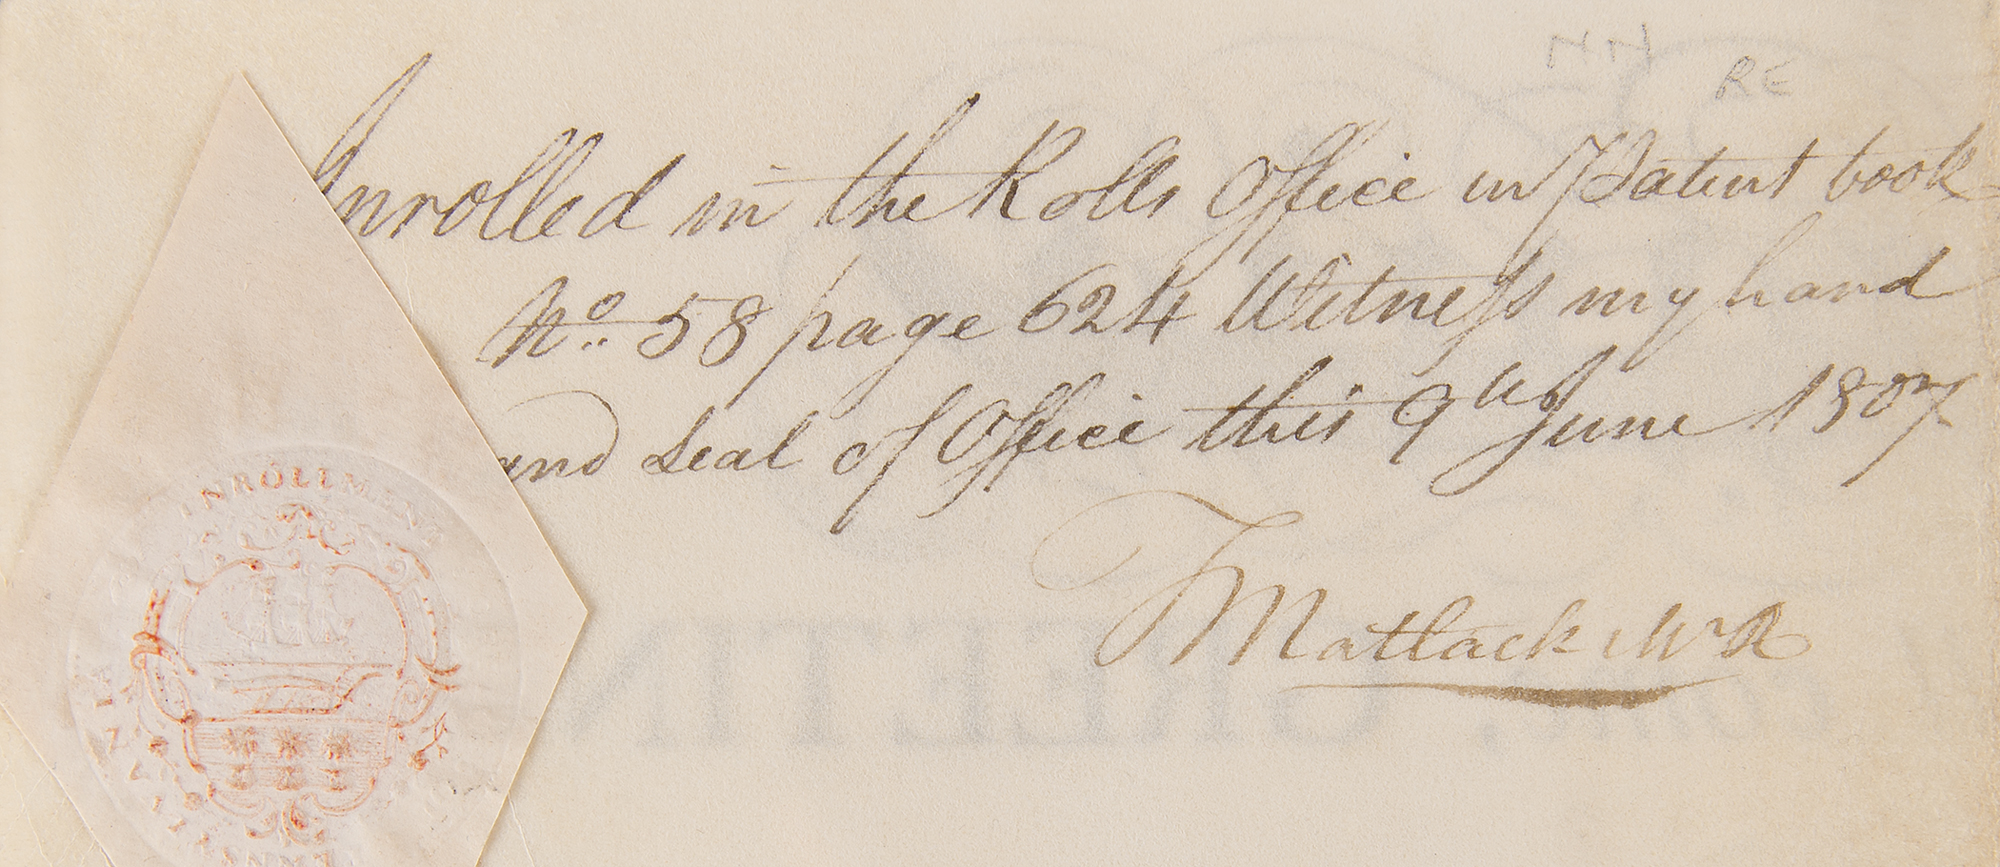 NN
RE
Inrolled in the Rolls Office in Patent book
No. 58 page 624 Witness my hand
and Seal of Office this 9th June 1807
TMatlack MR
INROLLMENT
GREETIN